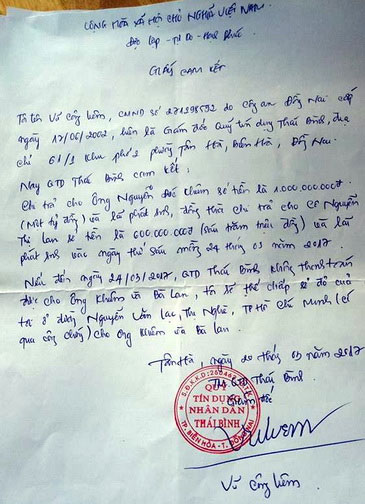 CỘNG HÒA XÃ HỘI CHỦ NGHĨA VIỆT NAM
Độc lập - Tự Do - Hạnh Phúc
GIẤY CAM KẾT
Tôi tên Võ Công Liêm, CMND số 271398592 do công an Đồng Nai cấp
ngày 17/06/2002, hiện là Giám đốc Quỹ tín dụng Thái Bình, địa
chỉ 61/1 Khu phố 2 phường Tân Hà, Biên Hòa, Đồng Nai.
Nay QTD Thái Bình cam kết:
Chi trả cho Ông Nguyễn Đức Khiêm số tiền là 1.000.000.000đ
(Một tỷ đồng) và lãi phát sinh, đồng thời chi trả cho Cô Nguyễn
Thị Lan số tiền là 600.000.000đ (sáu trăm triệu đồng) và lãi
phát sinh vào ngày thứ sáu 24 tháng 03 năm 2017.
Nếu đến ngày 24/03/2017, QTD Thái Bình không thanh toán
được cho Ông Khiêm và Bà Lan, tôi sẽ thế chấp sổ đỏ của
tôi ở đường Nguyễn Văn Lạc, TP Hồ Chí Minh (có
qua công chứng) cho Ông Khiêm và Bà Lan.
Tân Hà, ngày 20 tháng 03 năm 2017
TM QTD Thái Bình
Giám đốc
QUỸ
TÍN DỤNG
NHÂN DÂN
THÁI BÌNH
TP. BIÊN HÒA - T. ĐỒNG NAI
Võ Công Liêm